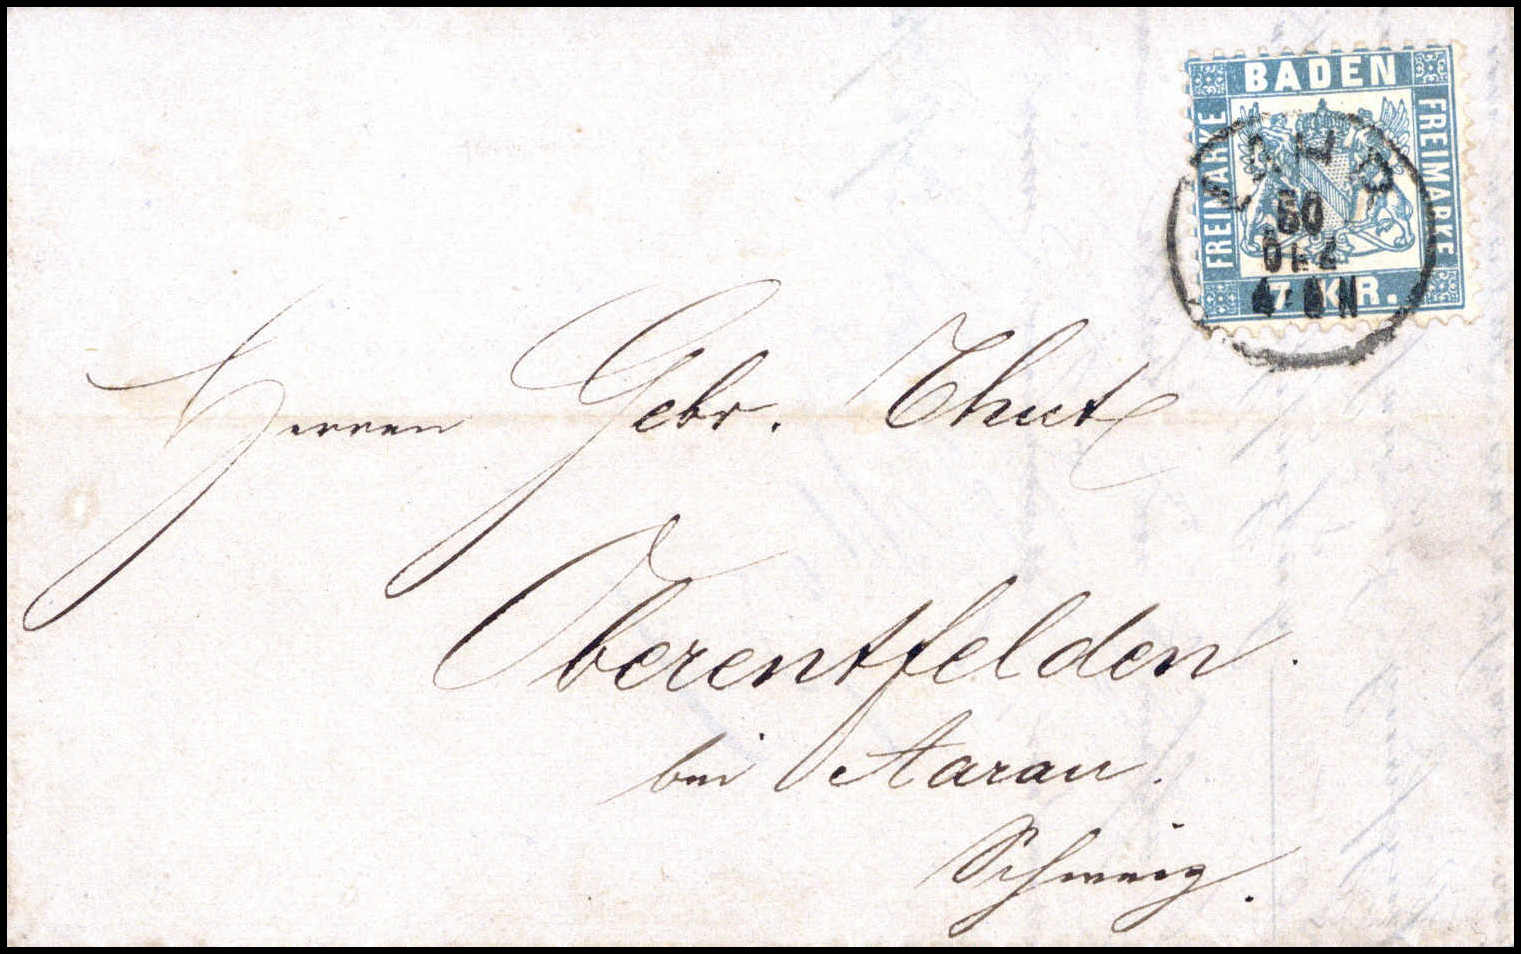 BADEN
FREIMARKE
FREIMARKE
7 KR.
LAHR
DEZ
Herren Gebr. Thut
Oberentfelden.
bei Aarau.
Schweiz.